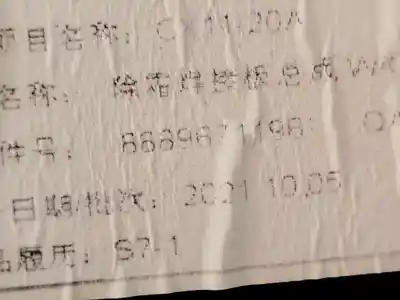 项目名称: CX11-20A
名称: 除霜焊接板总成
件号: 8889871198
日期/批次: 2021.10.05
品履历: S7-1